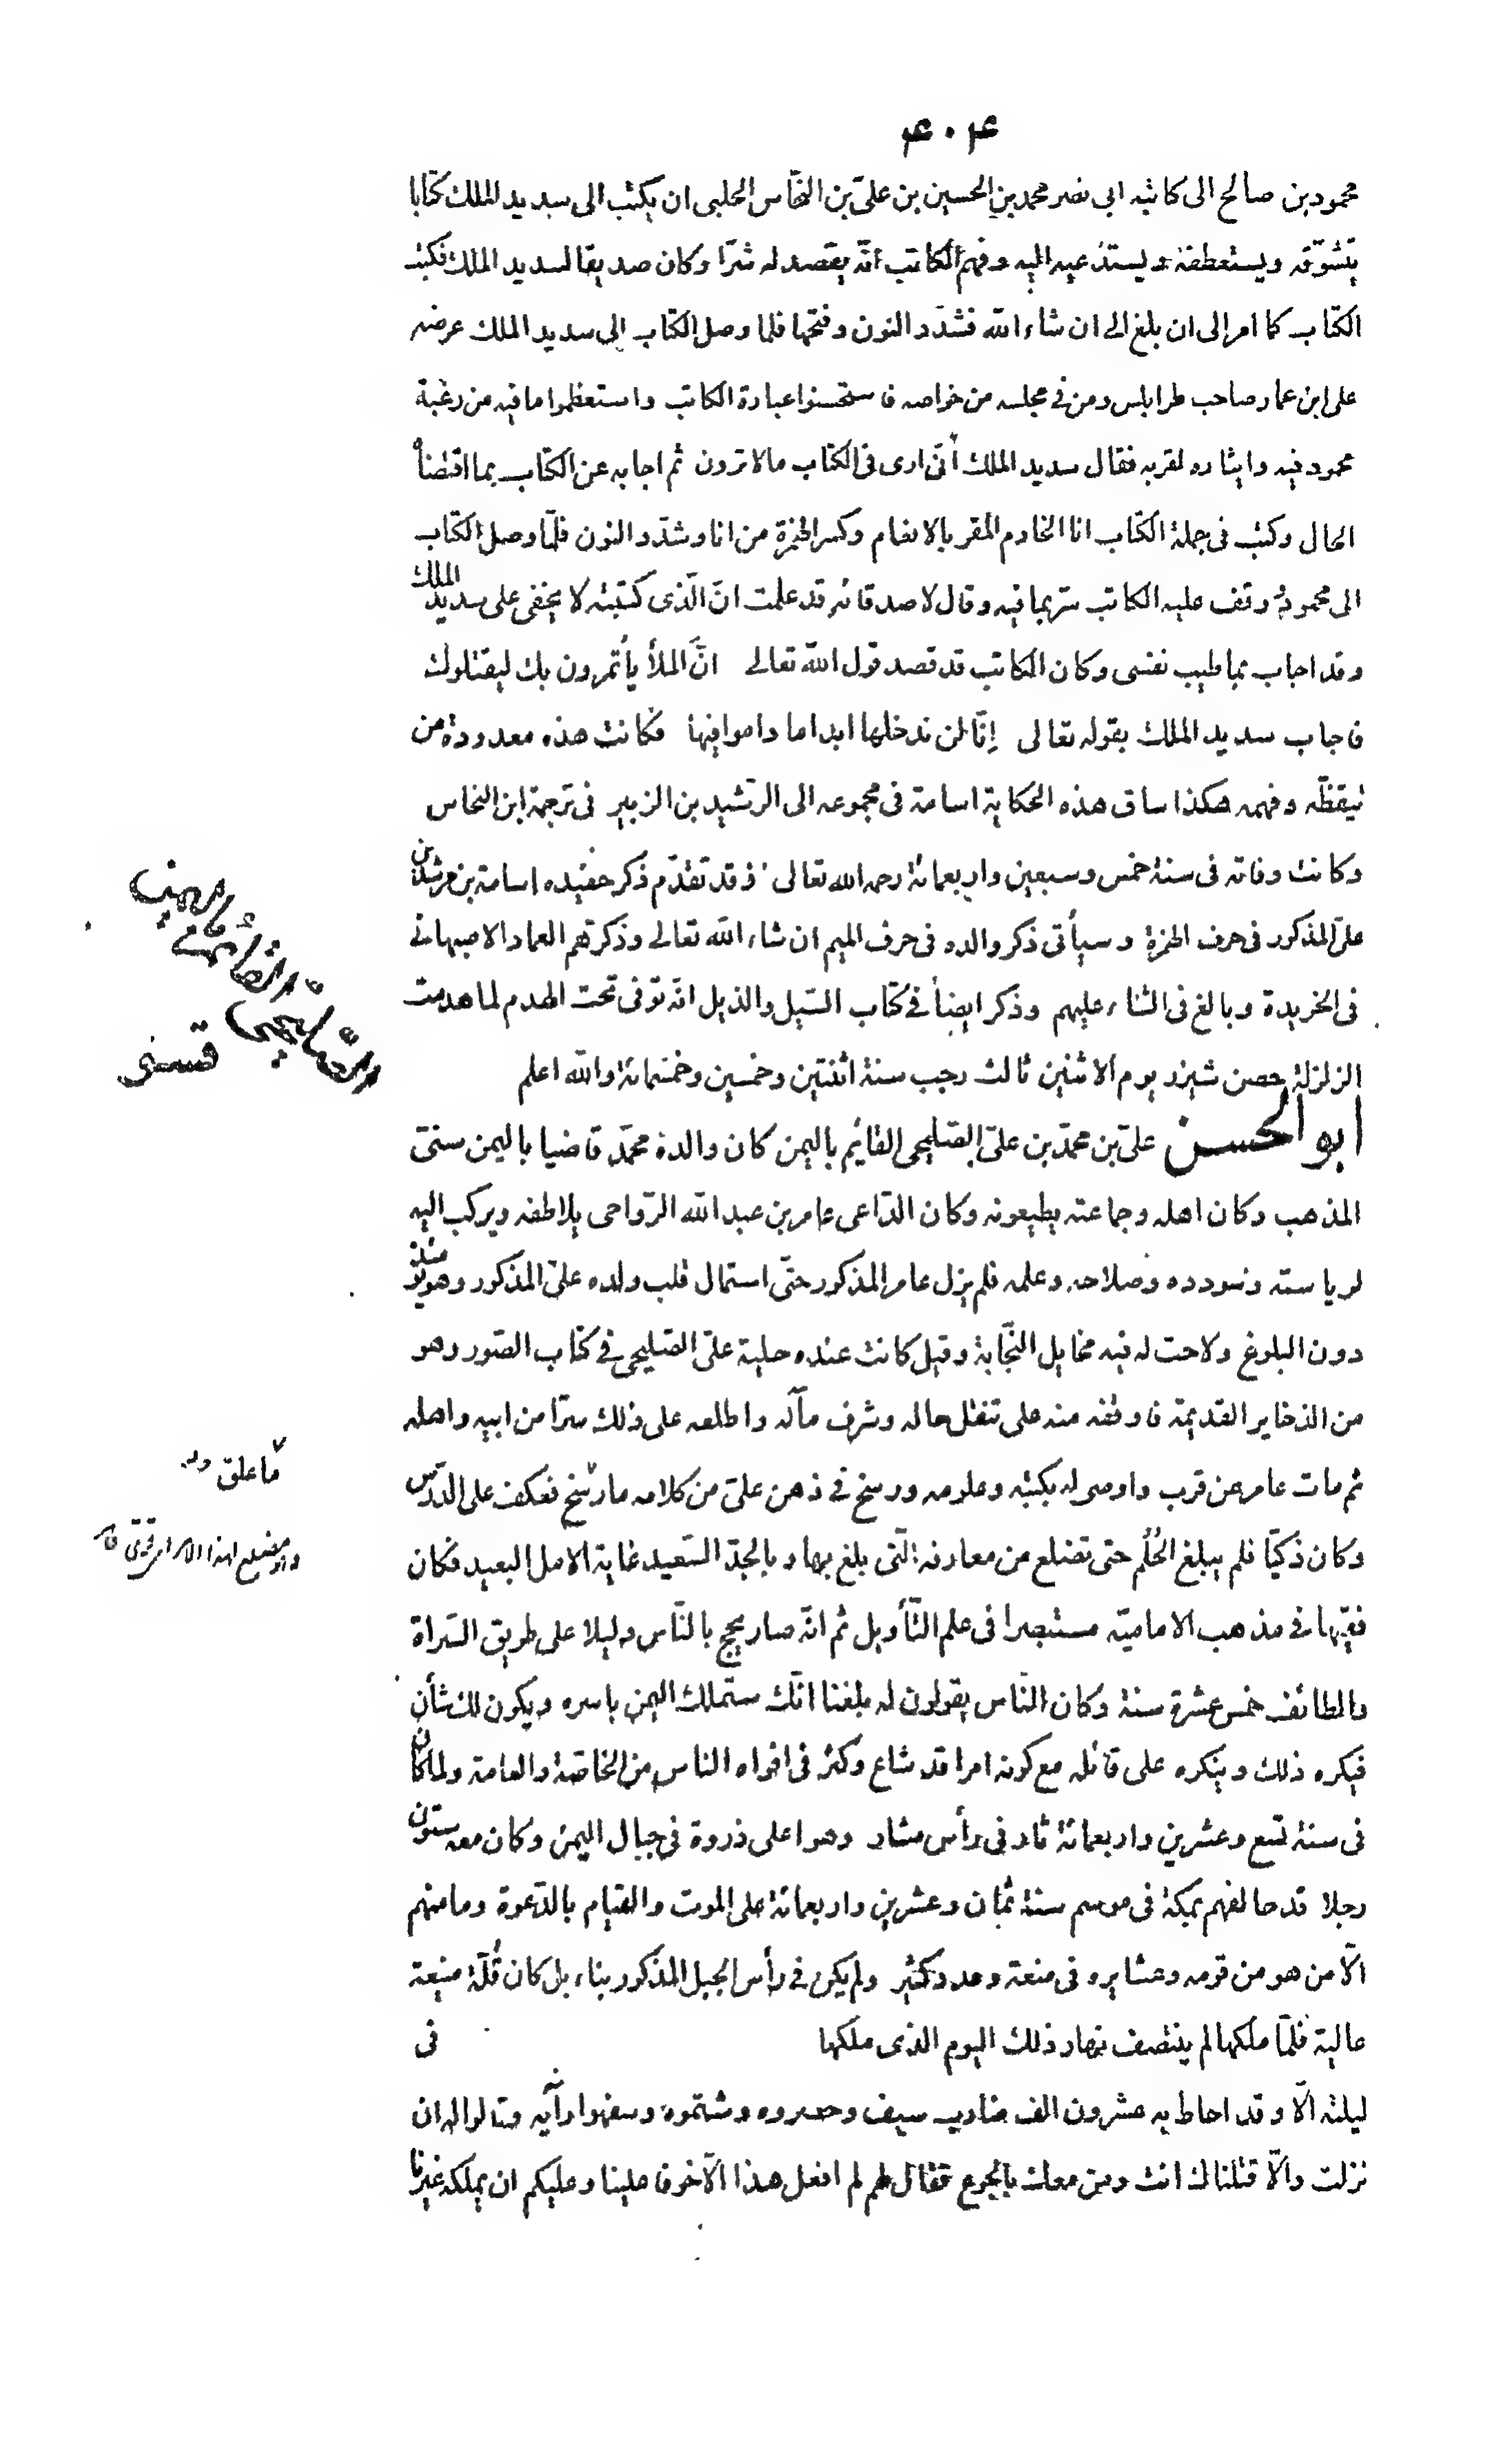 ۴۰۴
محمود بن صالح الى كاتبه ابى نصر محمد بن الحسين بن علىّ بن النحّاس الحلبى ان يكتب الى سديد الملك كتابا
يتشوّقه ويستعطفه ويستدعيه اليه وفهم الكاتب انّه يقصد له شرّا وكان صديقا لسديد الملك فكتب
الكتاب كما امر الى ان بلغ الى ان شاء اللّه فشدّد النون وفتحها فلما وصل الكتاب الى سديد الملك عرضه
على ابن عمار صاحب طرابلس ومن فى مجلسه من خواصه فاستحسنوا عبارة الكاتب واستعظموا ما فيه من رغبة
محمود فيه وايثاره لقربه فقال سديد الملك أنّى ارى فى الكتاب ما لا ترون ثم اجابه عن الكتاب بما اقتضاه
الحال وكتب فى جملة الكتاب انا الخادم المقر بالانعام وكسر الهمزة من انا وشدّد النون فلمّا وصل الكتاب
الى محمود وقف عليه الكاتب سرّ بما فيه وقال لاصدقائه قد علمت انّ الّذى كتبته لا يخفى على سديد الملك
وقد اجاب بما طيب نفسى وكان الكاتب قد قصد قول اللّه تعالى انّ الملأ يأتمرون بك ليقتلوك
فاجاب سديد الملك بقوله تعالى إنّا لن ندخلها ابدا ما داموا فيها فكانت هذه معدودة من
تيقظّه وفهمه هكذا ساق هذه الحكاية اسامة فى مجموعه الى الرّشيد بن الزبير فى ترجمة ابن النحاس
وكانت وفاته فى سنة خمس وسبعين واربعمائة رحمه الله تعالى وقد تقدّم ذكر حفيده اسامة بن مرشد بن
علىّ المذكور فى حرف الهمزة وسيأتى ذكر والده فى حرف الميم ان شاء اللّه تعالى وذكرهم العماد الاصبهانى
فى الخريدة وبالغ فى الثناء عليهم وذكر ايضاً فى كتاب السّيل والذيل انّه توفى تحت الهدم لما هدمت
الزلزلة حصن شيزر يوم الاثنين ثالث رجب سنة اثنتين وخمسين وخمسمائة واللّه اعلم
الصّليحى القائم باليمن
ابو الحسن علىّ بن محمّد بن علىّ الصّليحى القائم باليمن كان والده محمّد قاضيا باليمن سنىّ
المذهب وكان اهله وجماعته يطيعونه وكان الدّاعى عامر بن عبد اللّه الرّواحى يلاطفه ويركب اليه
لرياسته وسودده وصلاحه وعلمه فلم يزل عامر المذكور حتّى استمال قلب ولده علىّ المذكور وهو يومئذ
دون البلوغ ولاحت له فيه مخايل النّجابة وقيل كانت عنده حلية علىّ الصّليحى فى كتاب الصّور وهو
من الذخاير القديمة فاوقفه منه على تنقل حاله وشرف مآله واطلعه على ذلك سرّا من ابيه واهله
ثم مات عامر عن قرب واوصى له بكتبه وعلومه ورسخ فى ذهن علىّ من كلامه ما رسخ فعكف على الدّرس
ما علق
وكان ذكيّا فلم يبلغ الحُلُم حتى تضلع من معارفه الّتى بلغ بها وبالجدّ السّعيد غاية الامل البعيد فكان
فقيها فى مذهب الاماميّة مستبصرا فى علم التّأويل ثم انّه صار يحج بالنّاس دليلا على طريق السّراة
والطائف خمس عشرة سنة وكان النّاس يقولون له بلغنا انّك ستملك اليمن باسره ويكون لك شأن
فيكره ذلك وينكره على قائله مع كونه امرا قد شاع وكثر فى افواه الناس من الخاصّة والعامة ولما كان
فى سنة تسع وعشرين واربعمائة ثار فى رأس مشار وهو اعلى ذروة فى جبال اليمن وكان معه ستون
رجلا قد حالفهم بمكة فى موسم سنة ثمان وعشرين واربعمائة على الموت والقيام بالدّعوة وما منهم
الّا من هو من قومه وعشايره فى منعة وعدد كثير ولم يكن فى رأس الجبل المذكور بناء بل كان قُلّة منيعة
عالية فلمّا ملكها لم ينتصف نهار ذلك اليوم الذى ملكها فى
ليلته الّا وقد احاط به عشرون الف ضارب سيف وحصروه وشتموه وسفهوا رأيه وقالوا له ان
نزلت والّا قتلناك انت ومن معك بالجوع فقال لهم لم افعل هذا الّا خوفا علينا وعليكم ان يملكه غيرنا